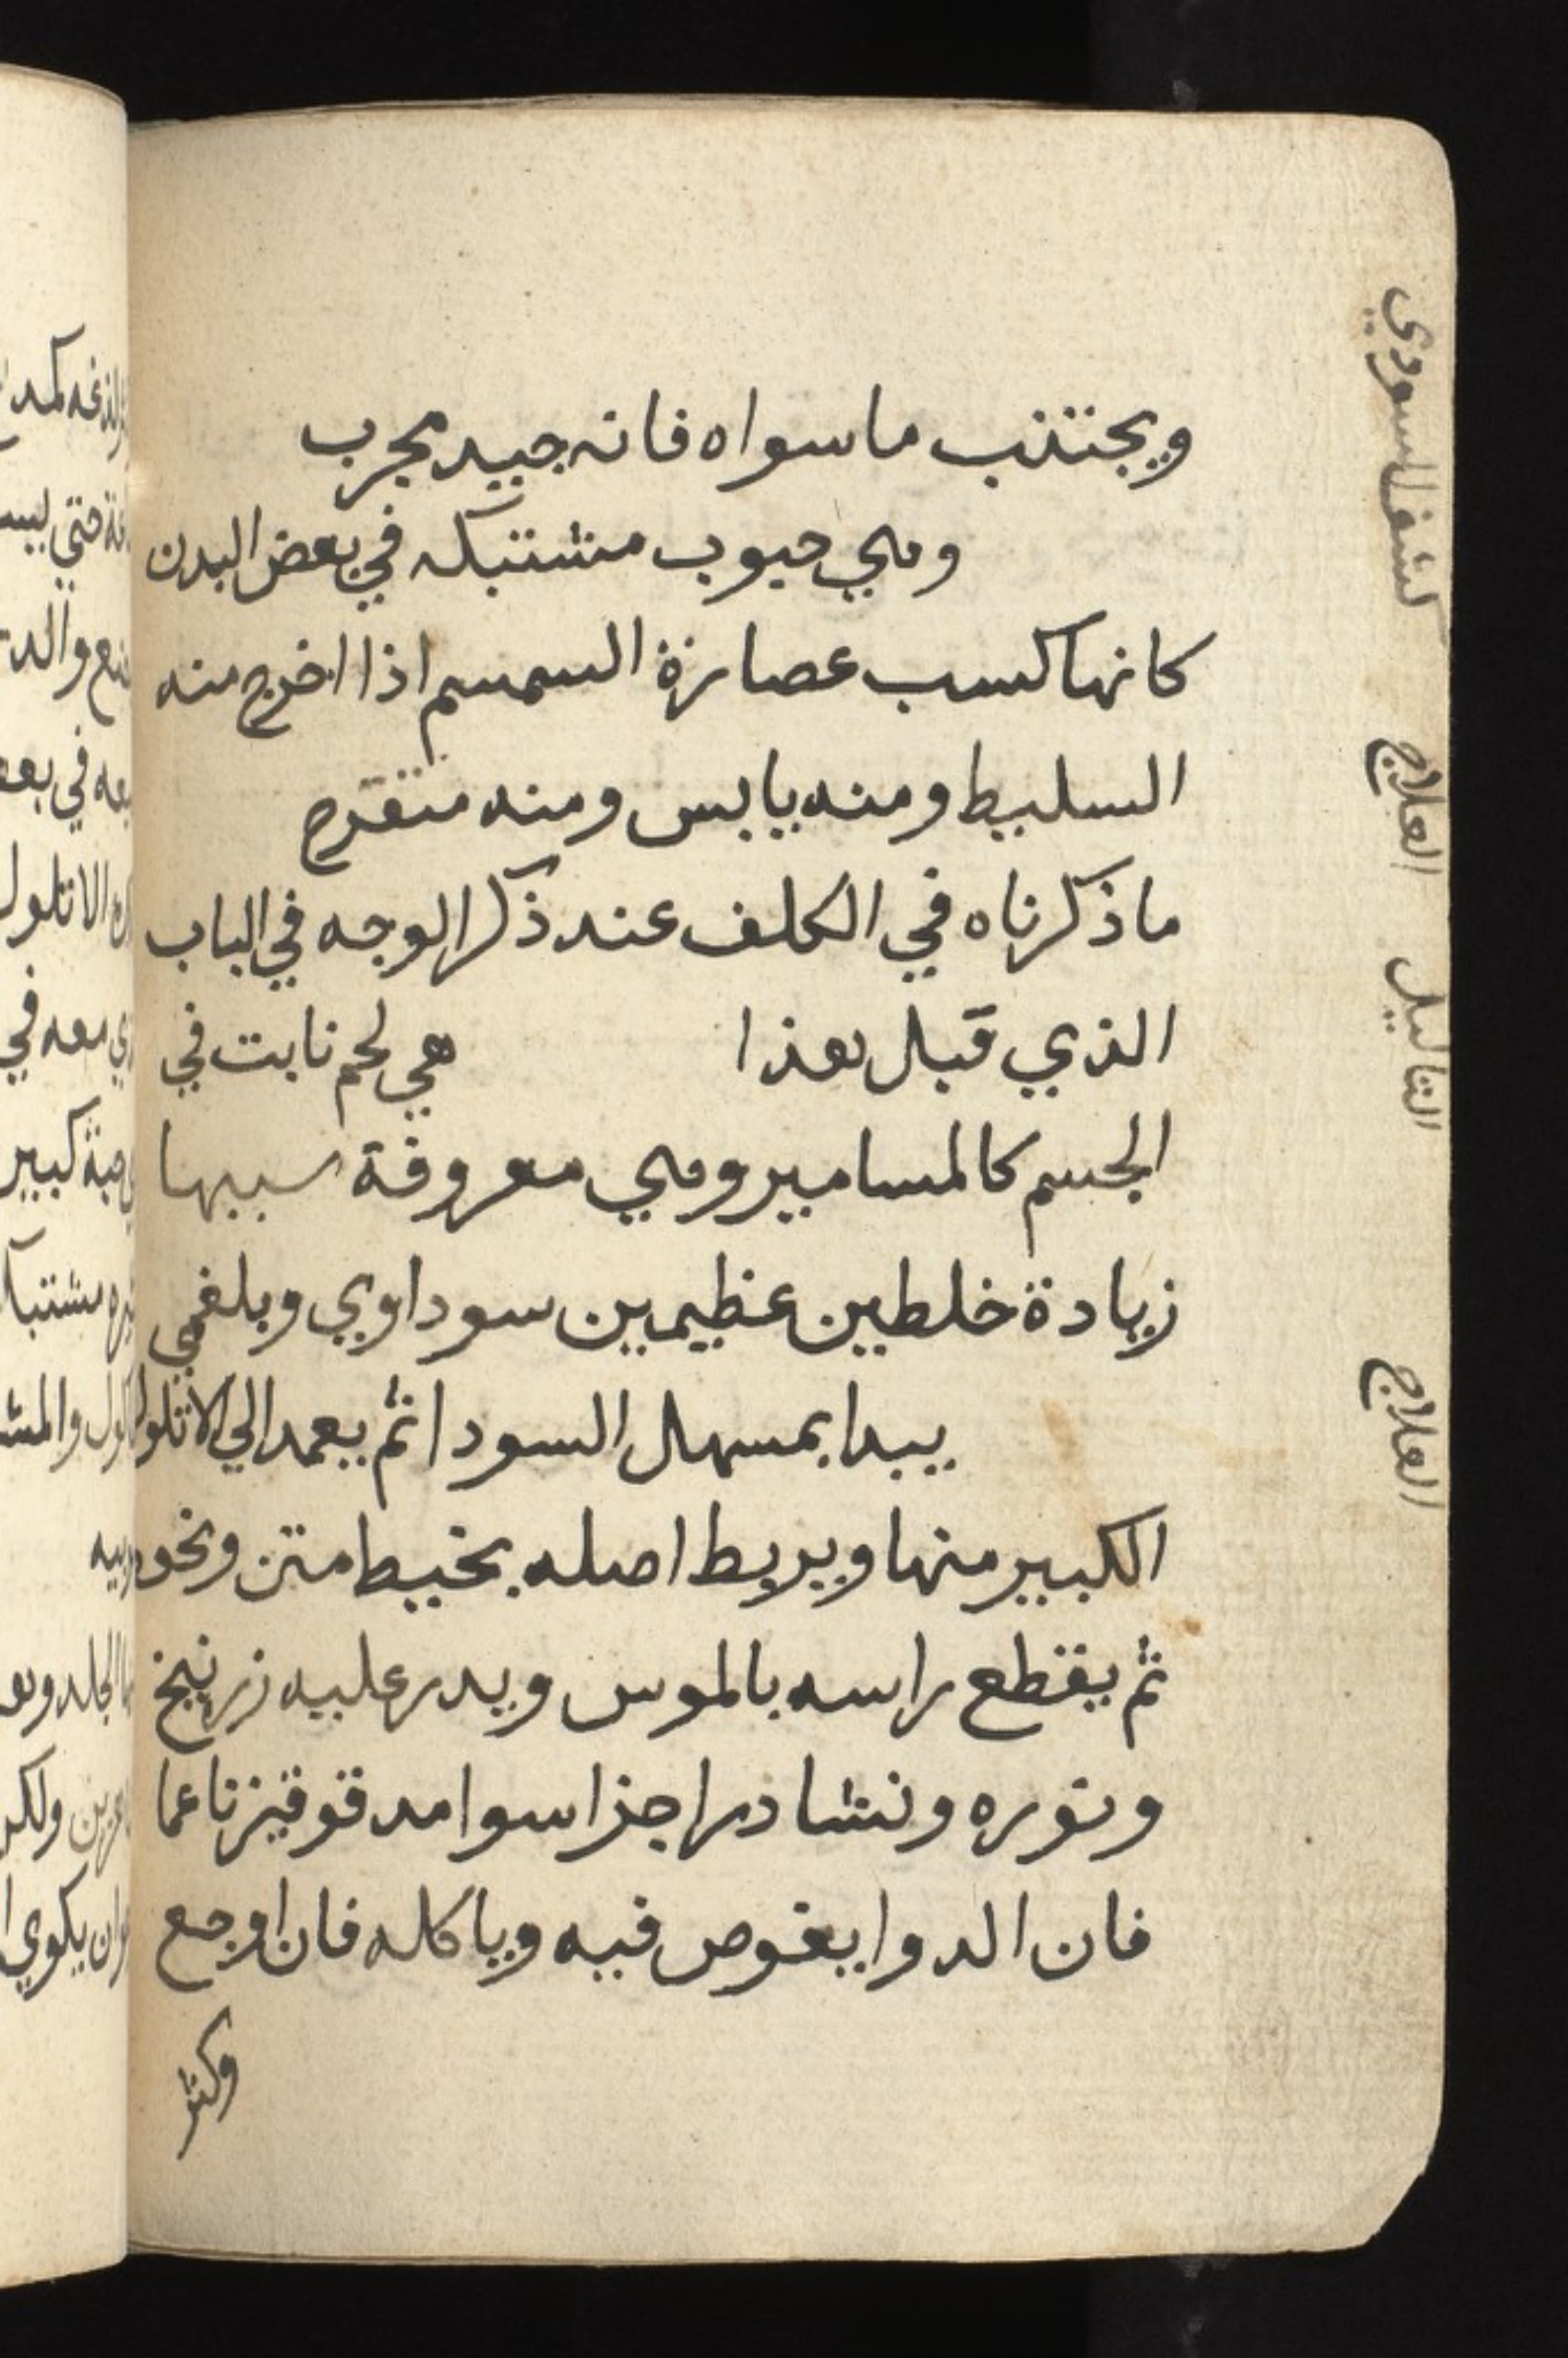 ويجتنب ما سواه فانه جيد مجرب
وهي حبوب مشتبكه في بعض البدن
كانها كسب عصارة السمسم اذا اخرج منه
السليط ومنه يابس ومنه متقرح
ما ذكرناه في الكلف عند ذكر الوجه في الباب
الذي قبل هذا هي لحم نابت في
الجسم كالمسامير وهي معروفة سببها
زيادة خلطين عظيمين سوداوي وبلغمي
يبدا بمسهل السودا ثم يعمد الي الاثلول
الكبير منها ويربط اصله بخيط متن ونحوه
ثم يقطع راسه بالموس ويدر عليه زرنيخ
ونوره ونشادر اجزا سوا مدقوقين ناعما
فان الدوا يغوص فيه وياكله فان اوجع
وكثر
العلاج
الثاليل
العلاج